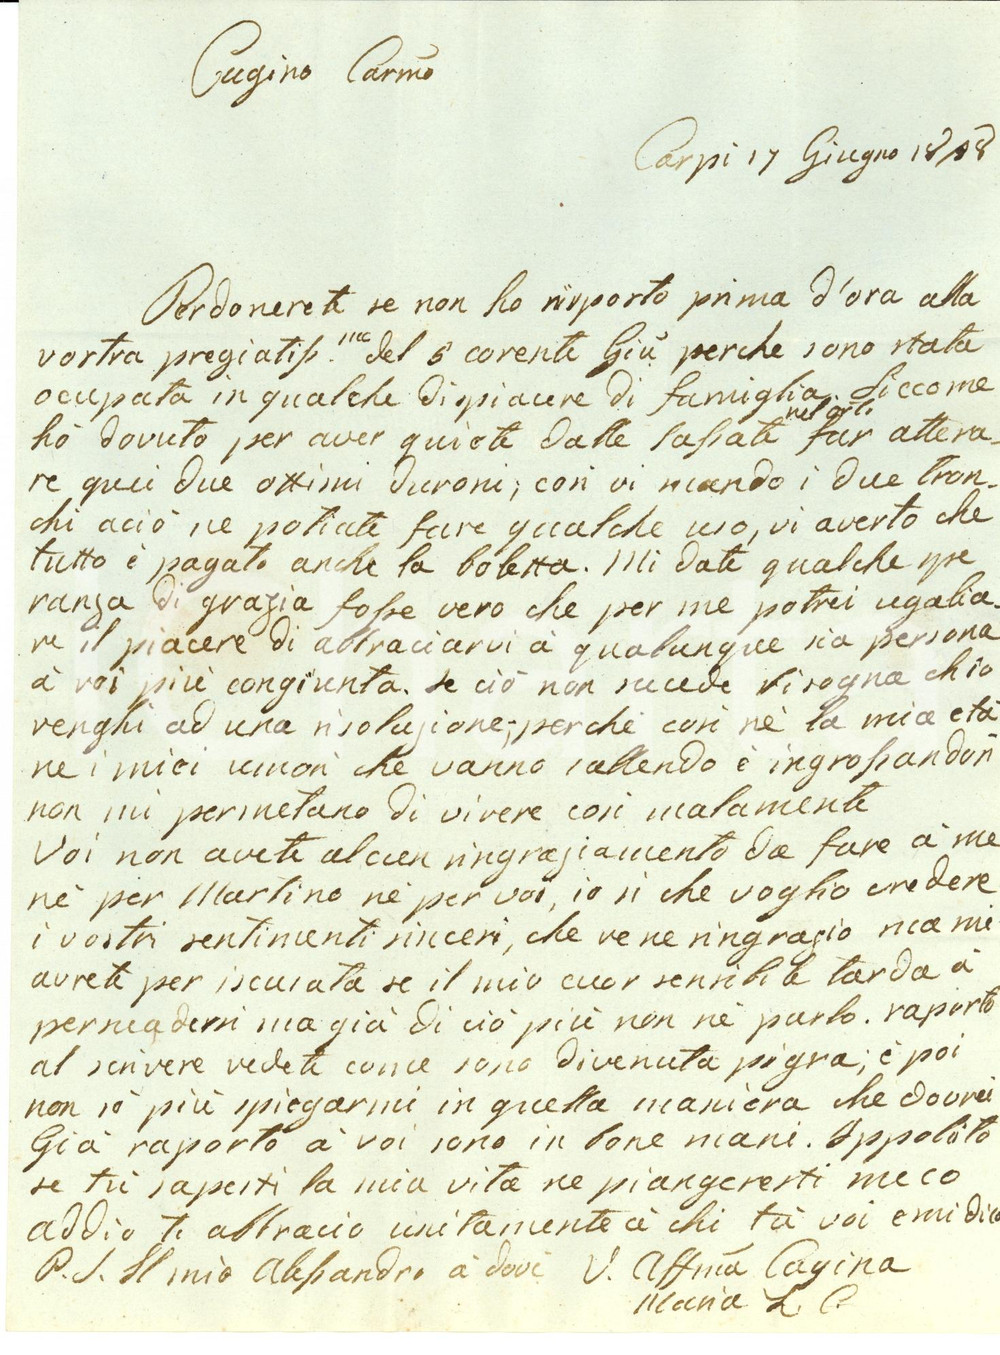 Cugino Carmo
Carpi 17 Giugno 1818
Perdonerete se non ho risposto prima d'ora alla
vostra pregiatiss.ma del 6 corente Giũ perche sono stata
ocupata in qualche dispiacere di famiglia. Siccome
hò dovuto per aver quiete dalle sassate nel orto far attera-
re quei due ottimi duroni; cosi vi mando i due tron-
chi aciò ne potiate fare qualche uso, vi averto che
tutto è pagato anche la boletta. Mi date qualche spe
ranza di grazia fosse vero che per me potrei ugalia-
re il piacere di abbraciarvi à qualunque sia persona
à voi più congiunta. Se ciò non sucede bisogna chio
venghi ad una risoluzione; perchè cosi nè la mia età
ne i miei umori che vanno sallendo è ingrossandosi
non mi permetano di vivere cosi malamente
Voi non avete alcun ringraziamento da fare à me
nè per Martino nè per voi, io si che voglio credere
i vostri sentimenti sinceri, che ve ne ringrazio ma mi
avrete per iscusata se il mio cuor sensibile tarda à
persuadersi ma già di ciò più non nè parlo. raporto
al scrivere vedete come sono divenuta pigra; è poi
non sò più spiegarmi in quella maniera che dovrei
Già raporto à voi sono in bone mani. Ippolito
se tù sapesti la mia vita ne piangeresti meco
addio ti abbracio unitamente à chi tù voi e mi dico
P. S. Il mio Alessandro à dovi V. Affma Cugina
Maria L. C.